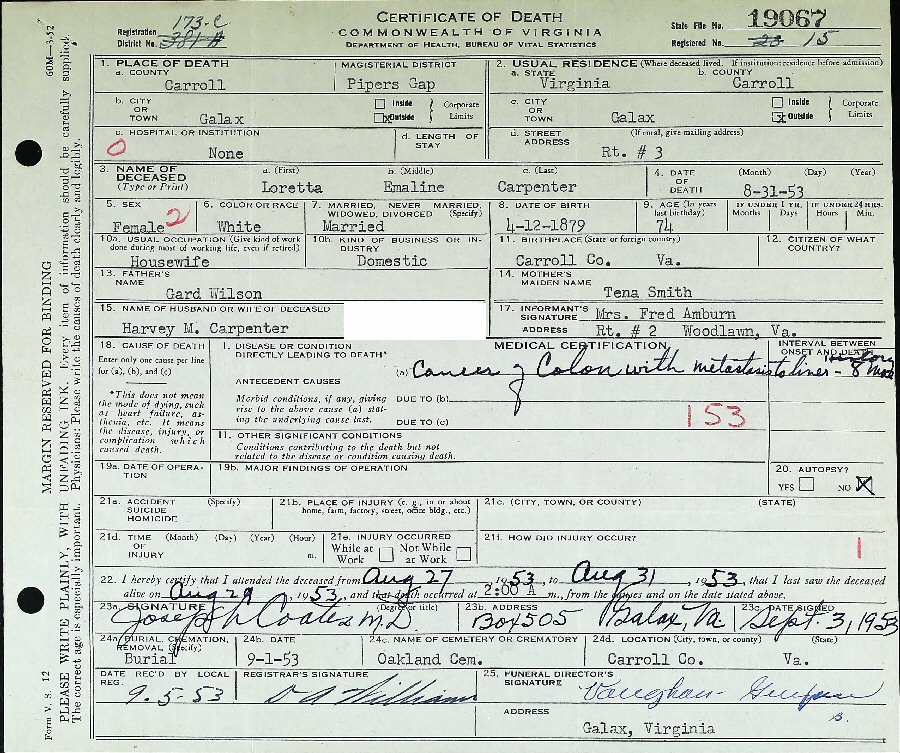 CERTIFICATE OF DEATH
COMMONWEALTH OF VIRGINIA
DEPARTMENT OF HEALTH, BUREAU OF VITAL STATISTICS
Registration District No. 381-A 173-C
State File No. 19067
Registered No. 23 15
60M—3-52
MARGIN RESERVED FOR BINDING
PLEASE WRITE PLAINLY, WITH UNFADING INK. Every item of information should be carefully supplied.
The correct age is especially important. Physicians: Please write the causes of death clearly and legibly.
Form V. S. 12
1. PLACE OF DEATH
a. COUNTY
Carroll
MAGISTERIAL DISTRICT
Pipers Gap
2. USUAL RESIDENCE (Where deceased lived. If institution: residence before admission)
a. STATE
Virginia
b. COUNTY
Carroll
b. CITY OR TOWN
Galax
Inside
x Outside
Corporate Limits
c. CITY OR TOWN
Galax
Inside
x Outside
Corporate Limits
c. HOSPITAL OR INSTITUTION
0
None
d. LENGTH OF STAY
d. STREET ADDRESS
(If rural, give mailing address)
Rt. # 3
3. NAME OF DECEASED
(Type or Print)
a. (First)
Loretta
b. (Middle)
Emaline
c. (Last)
Carpenter
4. DATE OF DEATH
(Month) (Day) (Year)
8-31-53
5. SEX
Female 2
6. COLOR OR RACE
White
7. MARRIED, NEVER MARRIED, WIDOWED, DIVORCED (Specify)
Married
8. DATE OF BIRTH
4-12-1879
9. AGE (In years last birthday)
74
IF UNDER 1 YR.
Months Days
IF UNDER 24 HRS.
Hours Min.
10a. USUAL OCCUPATION (Give kind of work done during most of working life, even if retired)
Housewife
10b. KIND OF BUSINESS OR INDUSTRY
Domestic
11. BIRTHPLACE (State or foreign country)
Carroll Co. Va.
12. CITIZEN OF WHAT COUNTRY?
13. FATHER'S NAME
Gard Wilson
14. MOTHER'S MAIDEN NAME
Tena Smith
15. NAME OF HUSBAND OR WIFE OF DECEASED
Harvey M. Carpenter
17. INFORMANT'S SIGNATURE
Mrs. Fred Amburn
ADDRESS
Rt. # 2 Woodlawn, Va.
18. CAUSE OF DEATH
Enter only one cause per line for (a), (b), and (c)
*This does not mean the mode of dying, such as heart failure, asthenia, etc. It means the disease, injury, or complication which caused death.
MEDICAL CERTIFICATION
INTERVAL BETWEEN ONSET AND DEATH
I. DISEASE OR CONDITION DIRECTLY LEADING TO DEATH*
(a) Cancer of Colon with metastasis to liver - 8 mos
ANTECEDENT CAUSES
Morbid conditions, if any, giving rise to the above cause (a) stating the underlying cause last.
DUE TO (b)
DUE TO (c)
153
11. OTHER SIGNIFICANT CONDITIONS
Conditions contributing to the death but not related to the disease or condition causing death.
19a. DATE OF OPERATION
19b. MAJOR FINDINGS OF OPERATION
20. AUTOPSY?
YES NO X
21a. ACCIDENT SUICIDE HOMICIDE
(Specify)
21b. PLACE OF INJURY (e. g., in or about home, farm, factory, street, office bldg., etc.)
21c. (CITY, TOWN, OR COUNTY) (STATE)
21d. TIME OF INJURY
(Month) (Day) (Year) (Hour) m.
21e. INJURY OCCURRED
While at Work
Not While at Work
21f. HOW DID INJURY OCCUR?
1
22. I hereby certify that I attended the deceased from Aug 27, 1953, to Aug 31, 1953, that I last saw the deceased
alive on Aug 29, 1953, and that death occurred at 2:00 A m., from the causes and on the date stated above.
23a. SIGNATURE (Degree or title)
Joseph Coates M.D.
23b. ADDRESS
Box 505 Galax, Va.
23c. DATE SIGNED
Sept. 3, 1953
24a. BURIAL, CREMATION, REMOVAL (Specify)
Burial
24b. DATE
9-1-53
24c. NAME OF CEMETERY OR CREMATORY
Oakland Cem.
24d. LOCATION (City, town, or county) (State)
Carroll Co. Va.
DATE REC'D BY LOCAL REG.
9-5-53
REGISTRAR'S SIGNATURE
25. FUNERAL DIRECTOR'S SIGNATURE
Vaughan-
ADDRESS
Galax, Virginia